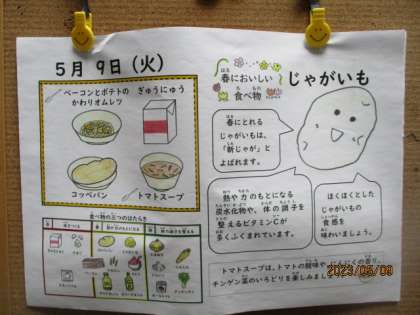 5月 9日 (火)
ベーコンとポテトの ぎゅうにゅう
かわりオムレツ
コッペパン
トマトスープ
食べ物の三つのはたらき
はる
春においしい
た もの
食べ物
じゃがいも
はる
春にとれる
じゃがいもは、
「新じゃが」と
よばれます。
熱や力のもとになる
炭水化物や、体の調子を
整えるビタミンCが
多くふくまれています。
ほくほくとした
じゃがいもの
食感を
味わいましょう。
トマトスープは、トマトの酸味や、にんにくの香り、
チンゲン菜のいろどりを楽しみまし
2023/05/09